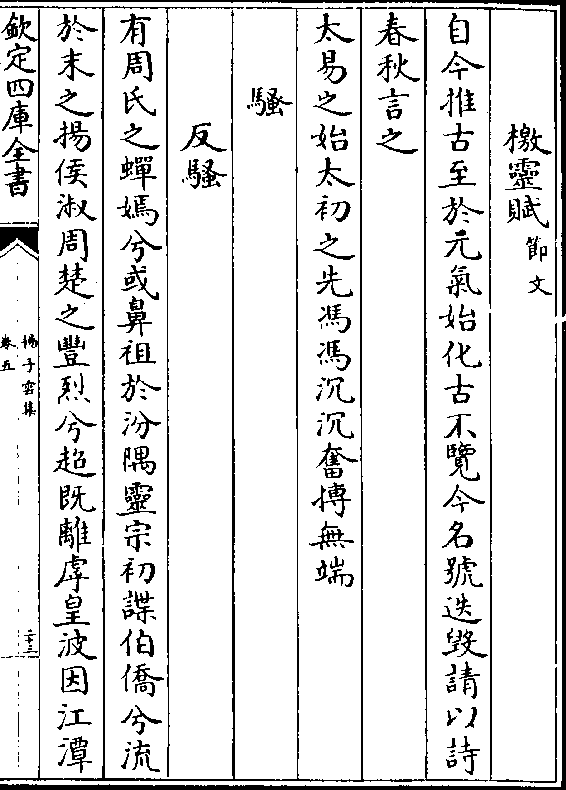 檄靈賦節文
自今推古至於元氣始化古不覽今名號迭毀請以詩
春秋言之
太易之始太初之先馮馮沉沉奮搏無端
騷
反騷
有周氏之蟬嫣兮或鼻祖於汾隅靈宗初諜伯僑兮流
於末之揚侯淑周楚之豐烈兮超旣離虖皇波因江潭
欽定四庫全書
揚子雲集
卷五
二十三